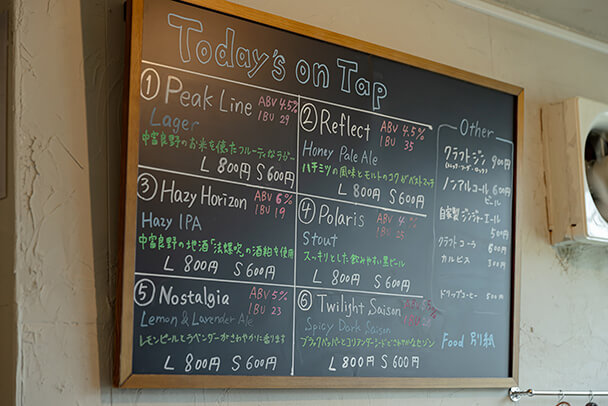 Today's on Tap
① Peak Line ABV 4.5%
IBU 29
Lager
中富良野のお米を使たフルーティなラガー
L 800円 S 600円
② Reflect ABV 4.5%
IBU 35
Honey Pale Ale
ハチミツの風味とモルトのコクがベストマッチ
L 800円 S 800円
③ Hazy Horizon ABV 6%
IBU 19
Hazy IPA
中富良野の地酒「法螺吹」の酒粕を使用
L 800円 S 600円
④ Polaris ABV
IBU
Stout
スッキリとした飲みやすい黒ビール
L 800円 S 600円
⑤ Nostalgia ABV 5%
IBU 23
Lemon & Lavender Ale
レモンピールとラベンダーがさわやかに香ります
L 800円 S 600円
⑥ Twilight Saison
Spicy Dark Saison
ブラックペッパーとコリアンダーシードとさわやかなセゾン
L 800円 S 600円
Other
クラフトジン 900円
ノンアルコール 600
ビール 円
自家製ジンジャーエール
500円
クラフトコーラ 600円
カルピス 300円
ドリップコーヒー 500円
Food 別紙